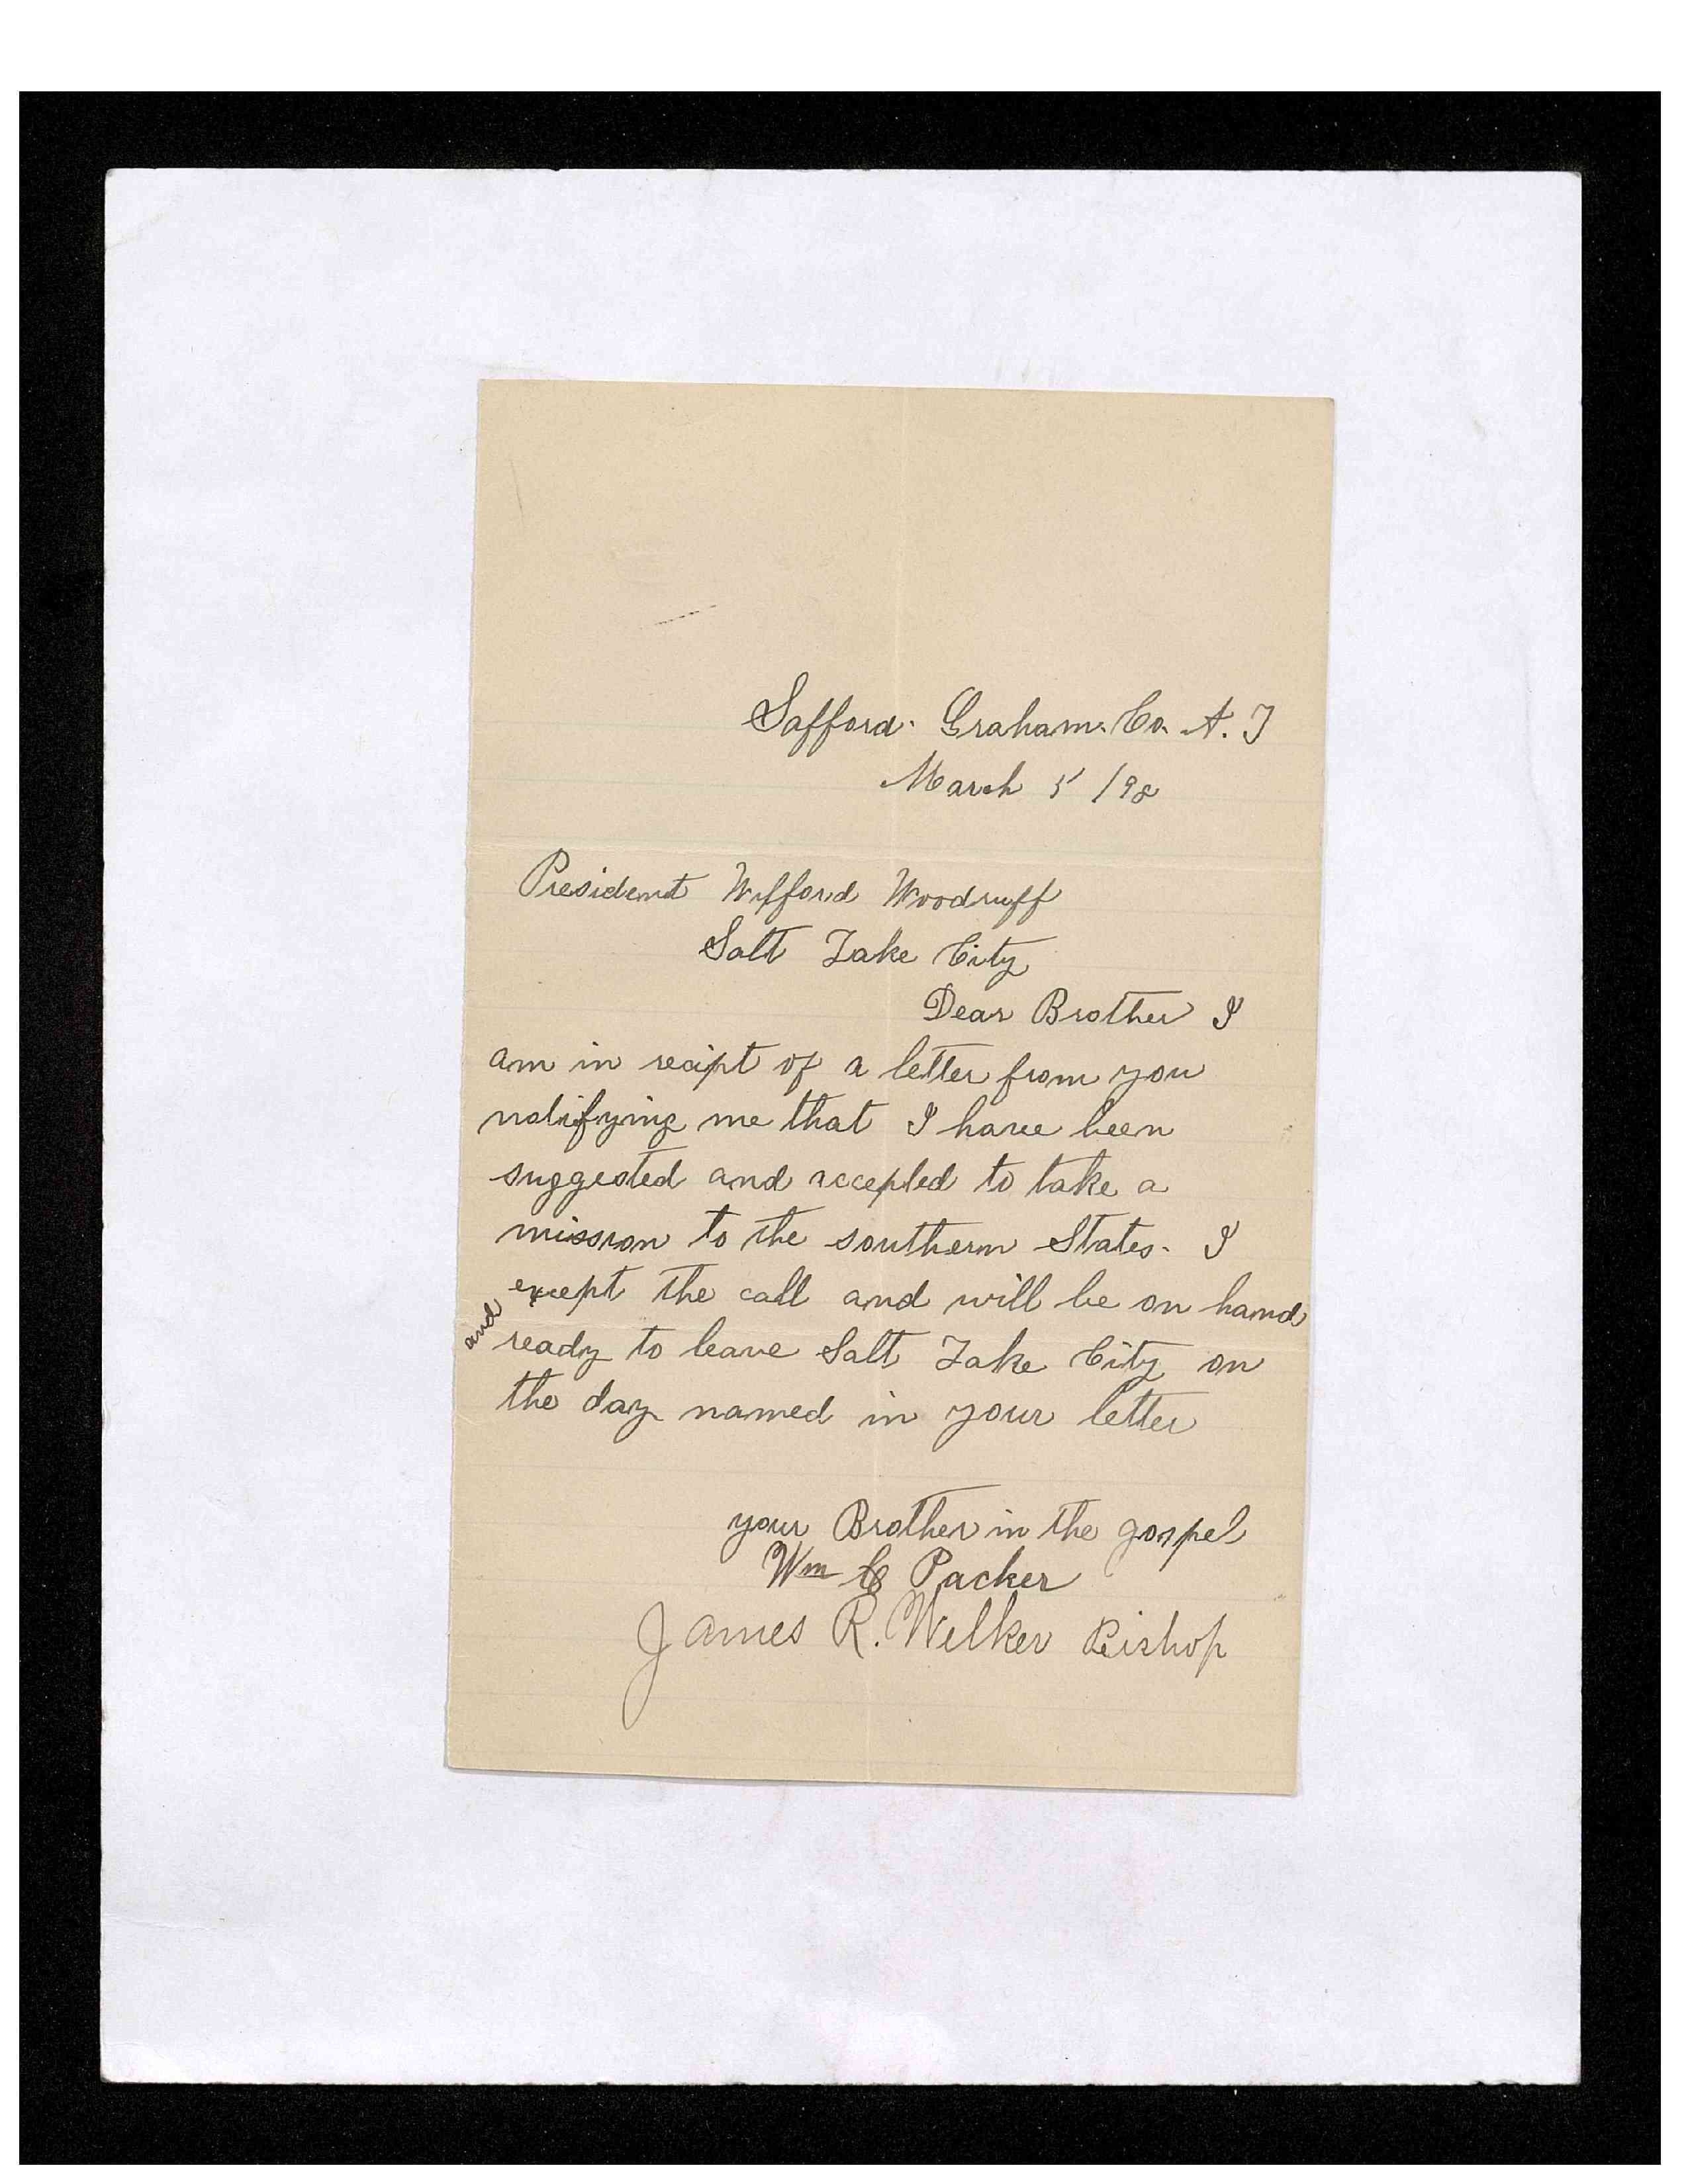 Safford. Graham. Co. A. T
March 5 /98
President Wilford Woodruff
Salt Lake City
Dear Brother I
am in recipt of a letter from you
notifying me that I have been
suggested and accepted to take a
mission to the southern States. I
except the call and will be on hand
and ready to leave Salt Lake City on
the day named in your letter
your Brother in the gospel
Wm C Packer
James R. Welker Bishop